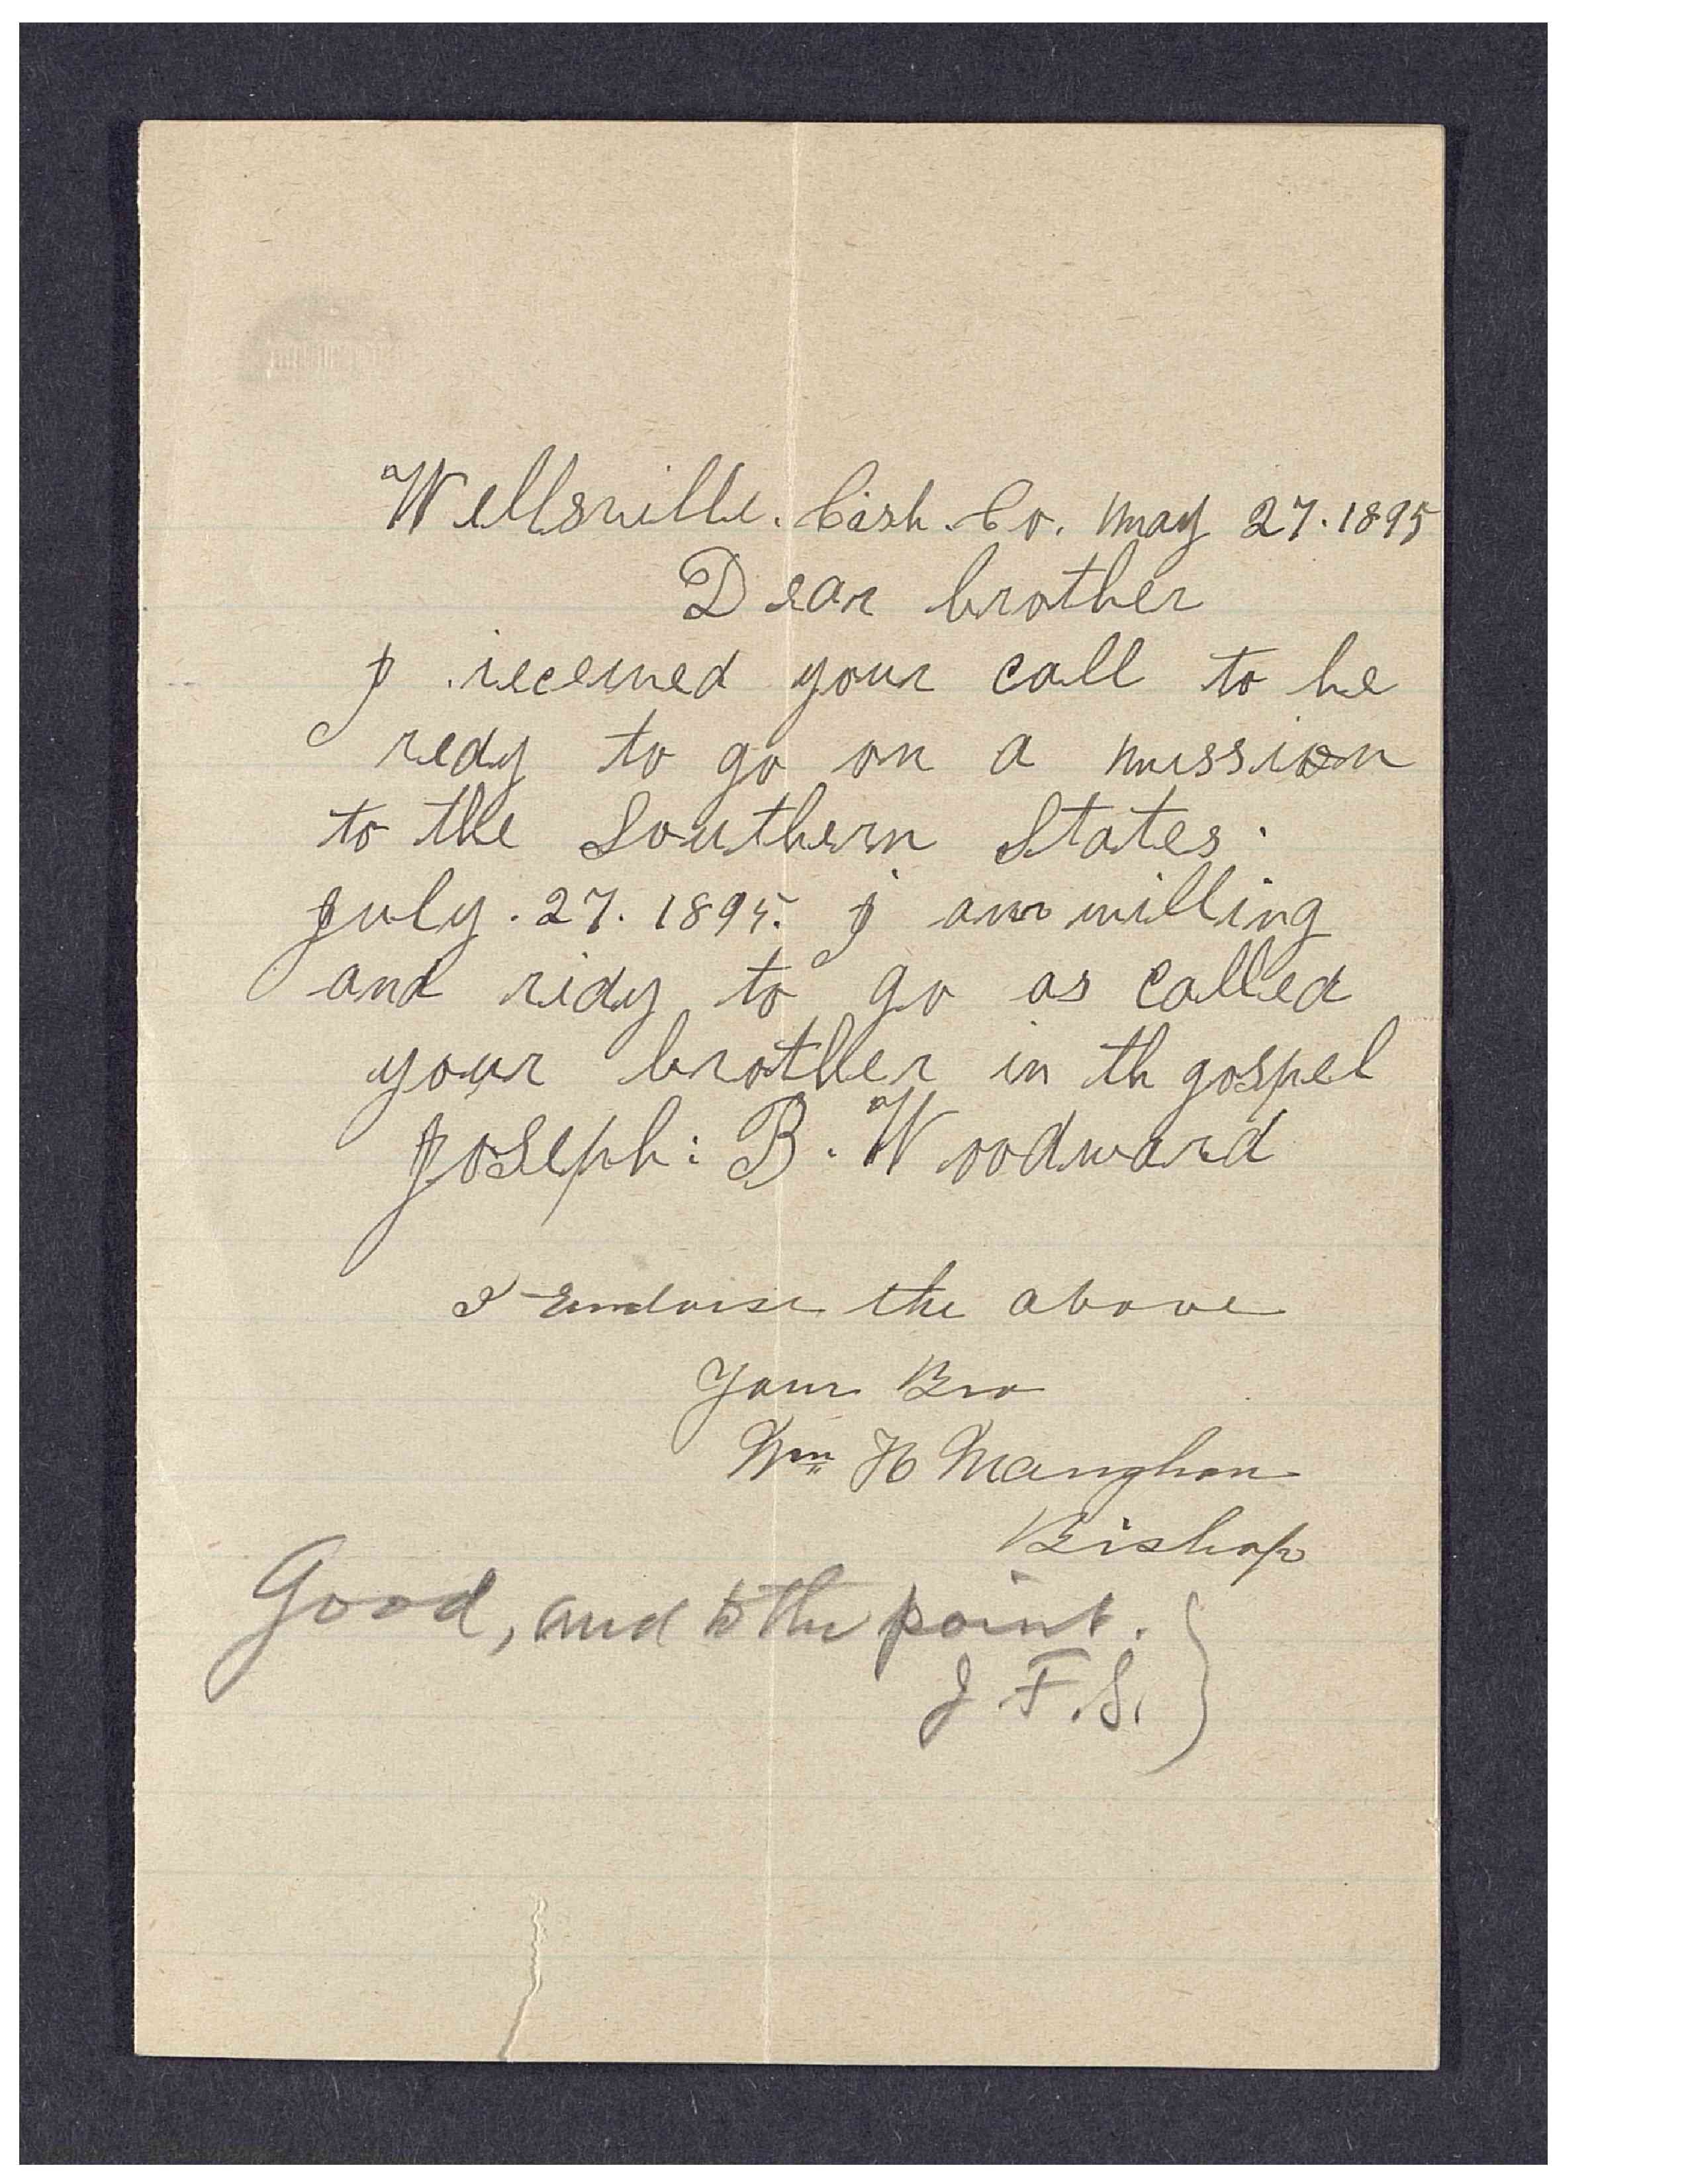 Wellsville. Cish. Co. may 27. 1895
Dear brother
I received your call to be
redy to go on a mission
to the Southern States.
July. 27. 1895. I am willing
and ridy to go as called
your brother in th gospel
Joseph: B. Woodward
I Endorse the above
Your Bro
Wm H Maughan
Bishop
Good, and to the point.
J. F. S.